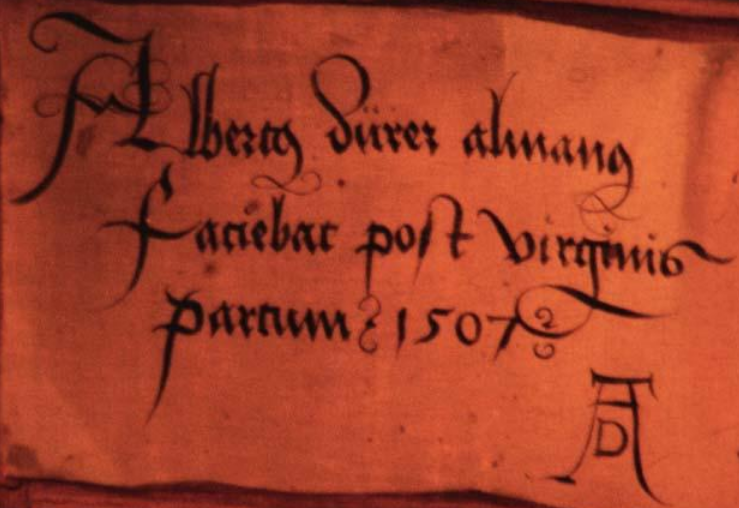 Albertꝰ dürer almanꝰ
faciebat post virginis
partum 1507
AD